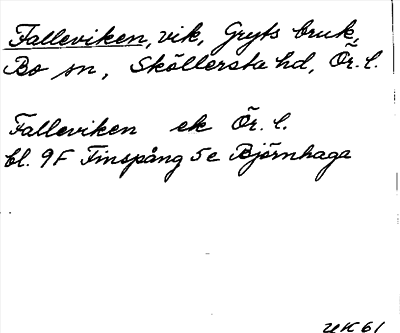 Falleviken, vik, Gryts bruk,
Bo sn, Sköllersta hd, Ör. l.
Falleviken ek Ör. l.
bl. 9F Finspång 5e Björnhaga
UK61